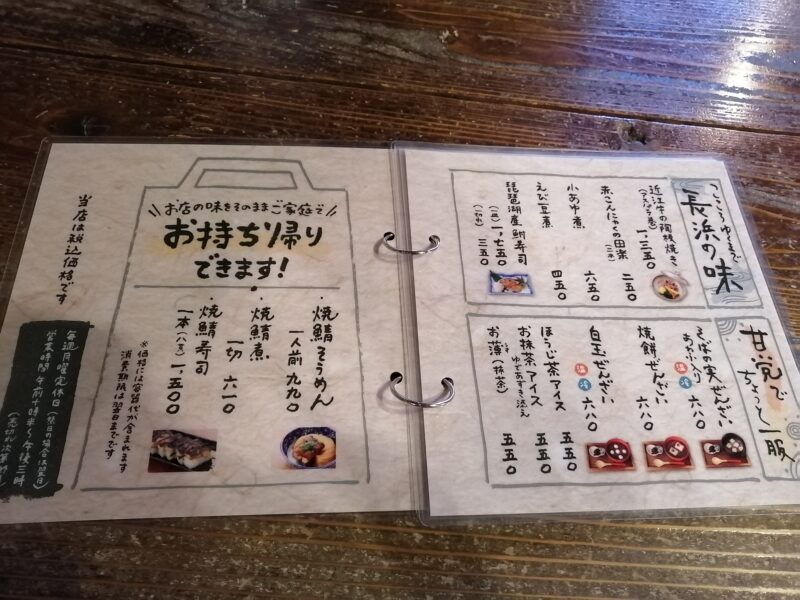 こころゆくまで
長浜の味
近江牛の陶板焼き
(アスパラ巻) 一、三五〇
赤こんにゃくの田楽
(二本) 二五〇
小あゆ煮 六五〇
えび豆煮 四五〇
琵琶湖産鮒寿司
(皿) 一、七五〇
(一切れ) 三五〇
甘党で
ちょっと一服
そばの実ぜんざい
あわ入り 温 冷 六八〇
焼餅ぜんざい 六八〇
白玉ぜんざい 温 冷 六八〇
ほうじ茶アイス 五五〇
お抹茶アイス
ゆであずき添え 五五〇
お薄(抹茶) 五五〇
お店の味をそのままご家庭で
お持ち帰り
できます!
焼鯖そうめん
一人前 九九〇
焼鯖煮
一切 六一〇
焼鯖寿司
一本(八貫) 一、五〇〇
※価格には容器代が含まれます
消費期限は翌日までです
当店は税込価格です
毎週月曜定休日(祭日の場合は翌日)
営業時間 午前十時半〜午後三時
(売切れ次第